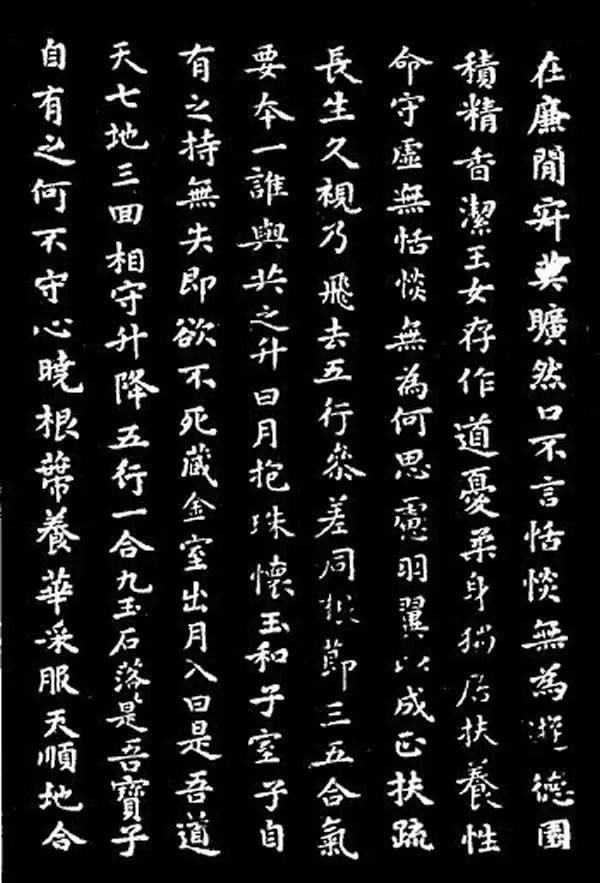 在廉閒寂莫曠然口不言恬惔無為遊德園
積精香潔玉女存作道憂柔身獨居扶養性
命守虛無恬惔無為何思慮羽翼以成正扶疏
長生久視乃飛去五行參差同根節三五合氣
要本一誰與共之升日月抱珠懷玉和子室子自
有之持無失即欲不死藏金室出月入日是吾道
天七地三回相守升降五行一合九玉石落是吾寶子
自有之何不守心曉根蔕養華采服天順地合